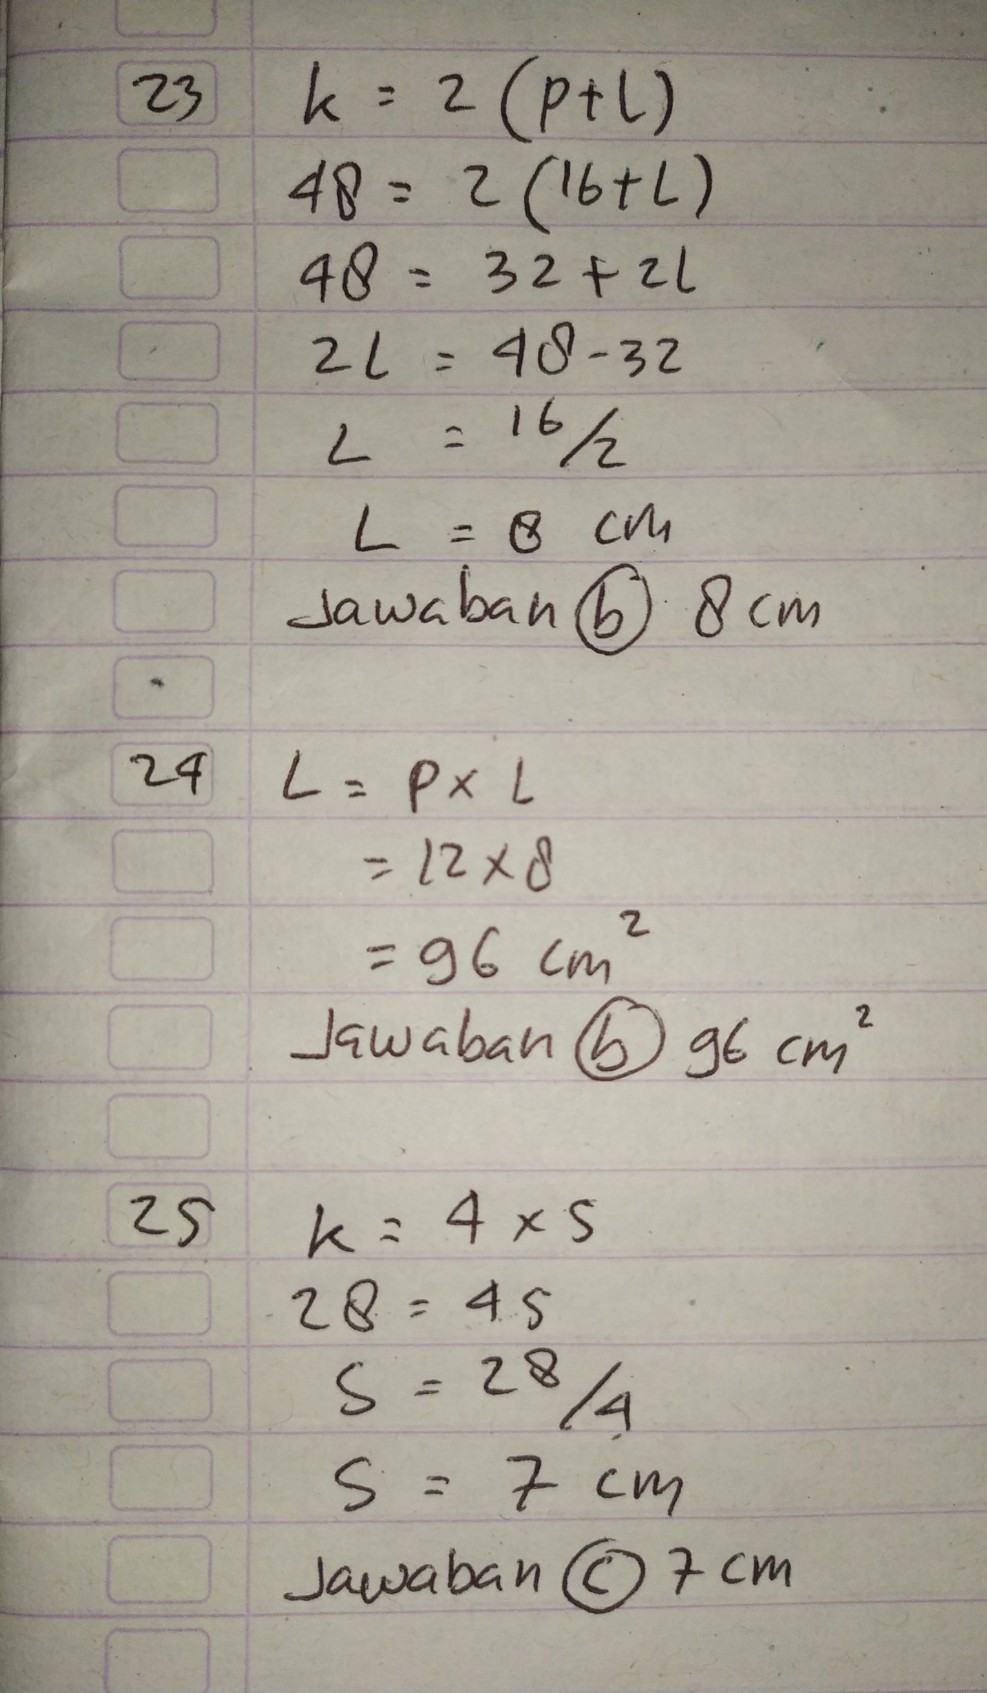 23 k = 2 (p+l)
48 = 2 (16+L)
48 = 32 + 2l
2l = 48-32
L = 16/2
L = 8 cm
Jawaban (b) 8 cm
24 L = p x l
= 12 x 8
= 96 cm²
Jawaban (b) 96 cm²
25 k = 4 x s
28 = 4s
S = 28/4
S = 7 cm
Jawaban (c) 7 cm